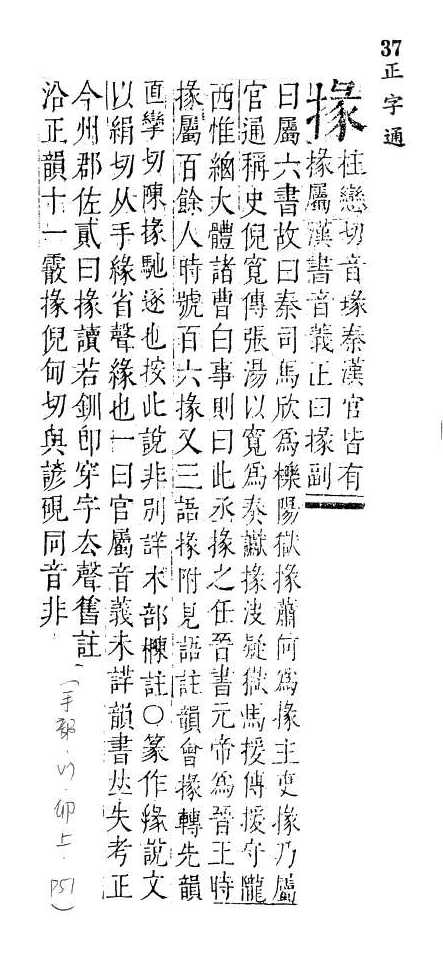 37
正字通
掾
柱戀切音瑑秦漢官皆有
掾屬漢書音義正曰掾副
曰屬六書故曰秦司馬欣爲櫟陽獄掾蕭何爲掾主吏掾乃屬
官通稱史倪寬傳張湯以寬爲奏讞掾決疑獄馬援傳援守隴
西惟緫大體諸曹白事則曰此丞掾之任晉書元帝爲晉王時
掾屬百餘人時號百六掾又三語掾附見語註韻會掾轉先韻
直攣切陳掾馳逐也按此說非別詳木部橼註○篆作掾說文
以絹切从手緣省聲緣也一曰官屬音義未詳韻書夶失考正
今州郡佐貳曰掾讀若釧卽穿字去聲舊註
沿正韻十一霰掾倪甸切與諺硯同音非
(手部.
卯上.
P51)